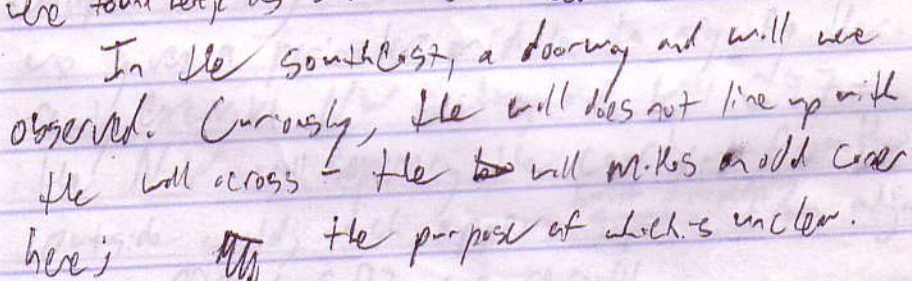 were found
In the southeast, a doorway and wall were
observed. Curiously, the wall does not line up with
the wall across - the wall makes an odd corner
here; the purpose of which is unclear.